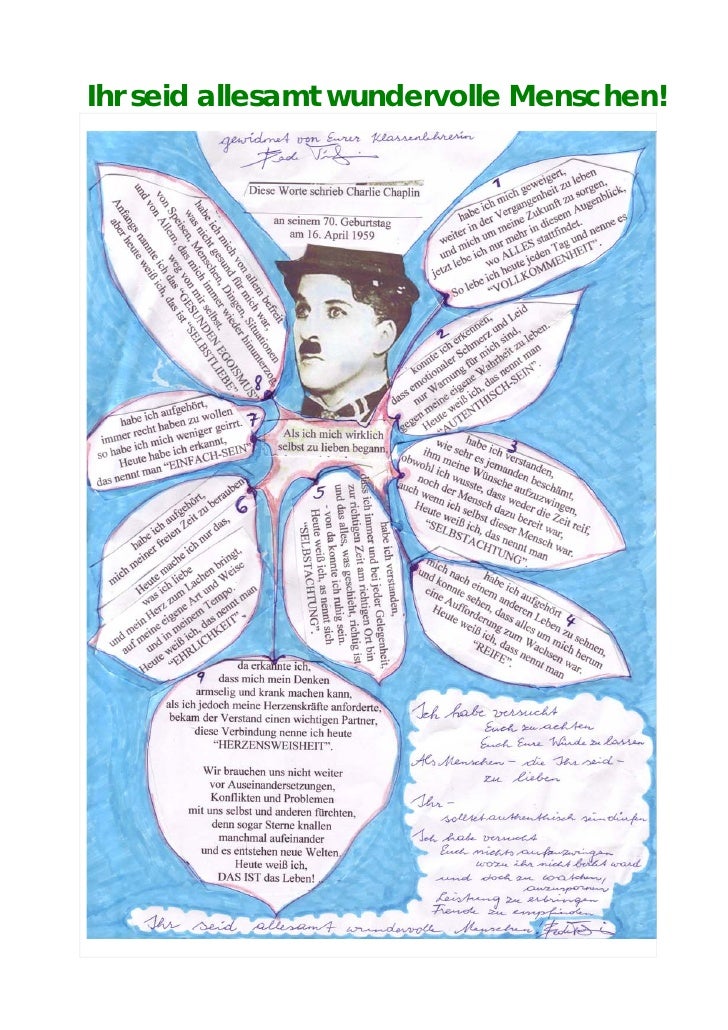 Ihr seid allesamt wundervolle Menschen!
gewidmet von Eurer Klassenlehrerin
Diese Worte schrieb Charlie Chaplin
an seinem 70. Geburtstag
am 16. April 1959
Als ich mich wirklich
selbst zu lieben begann,
1
habe ich mich geweigert,
weiter in der Vergangenheit zu leben
und mich um meine Zukunft zu sorgen,
jetzt lebe ich nur mehr in diesem Augenblick,
wo ALLES stattfindet.
So lebe ich heute jeden Tag und nenne es
"VOLLKOMMENHEIT".
2
konnte ich erkennen,
dass emotionaler Schmerz und Leid
nur Warnung für mich sind,
gegen meine eigene Wahrheit zu leben.
Heute weiß ich, das nennt man
"AUTENTHISCH-SEIN".
3
habe ich verstanden,
wie sehr es jemanden beschämt,
ihm meine Wünsche aufzuzwingen,
obwohl ich wusste, dass weder die Zeit reif,
noch der Mensch dazu bereit war,
auch wenn ich selbst dieser Mensch war.
Heute weiß ich, das nennt man
"SELBSTACHTUNG".
4
habe ich aufgehört
mich nach einem anderen Leben zu sehnen,
und konnte sehen, dass alles um mich herum
eine Aufforderung zum Wachsen war.
Heute weiß ich, dass nennt man
"REIFE".
5
habe ich verstanden,
dass ich immer und bei jeder Gelegenheit,
zur richtigen Zeit am richtigen Ort bin
und das alles, was geschieht, richtig ist
- von da konnte ich ruhig sein.
Heute weiß ich, as nennt sich
"SELBSTACHTUNG".
6
habe ich aufgehört,
mich meiner freien Zeit zu berauben
Heute mache ich nur das,
was ich liebe
und mein Herz zum Lachen bringt,
auf meine eigene Art und Weise
und in meinem Tempo.
Heute weiß ich, das nennt man
"EHRLICHKEIT".
7
habe ich aufgehört,
immer recht haben zu wollen
so habe ich mich weniger geirrt.
Heute habe ich erkannt,
das nennt man "EINFACH-SEIN"
8
habe ich mich von allem befreit
was nicht gesund für mich war.
von Speisen, Menschen, Dingen, Situationen
und von Allem, das mich immer wieder hinunterzog
weg von mir selbst.
Anfangs nannte ich das "GESUNDEN EGOISMUS"
aber heute weiß ich, das ist "SELBSTLIEBE".
9
da erkannte ich,
dass mich mein Denken
armselig und krank machen kann,
als ich jedoch meine Herzenskräfte anforderte,
bekam der Verstand einen wichtigen Partner,
diese Verbindung nenne ich heute
"HERZENSWEISHEIT".
Wir brauchen uns nicht weiter
vor Auseinandersetzungen,
Konflikten und Problemen
mit uns selbst und anderen fürchten,
denn sogar Sterne knallen
manchmal aufeinander
und es entstehen neue Welten.
Heute weiß ich,
DAS IST das Leben!
Ich habe versucht
Euch zu achten
Euch Eure Würde zu lassen
Als Menschen - die Ihr seid -
zu lieben
Ihr -
solltet authentisch sein dürfen
Ich habe versucht
Euch nichts aufzuzwingen
wozu ihr nicht bereit ward
und doch zu
anzuspornen
Leistung zu erbringen
Freude zu empfinden
Ihr seid allesamt wundervolle Menschen!